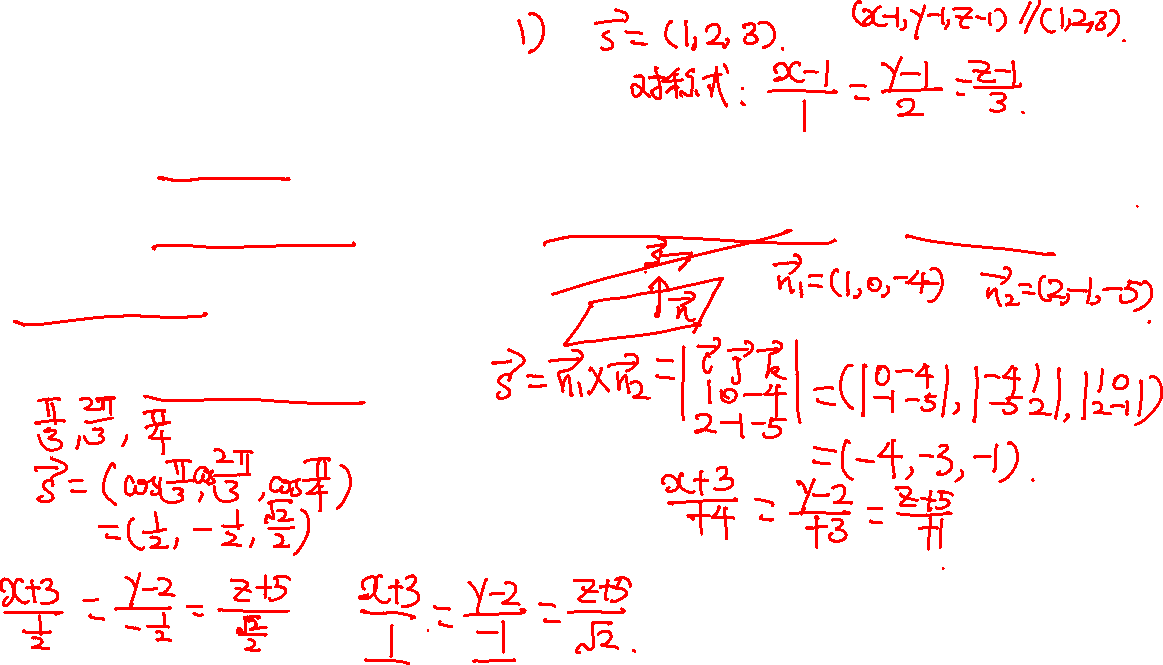 1) s⃗=(1,2,3). (x-1,y-1,z-1)//(1,2,3).
对称式: (x-1)/1 = (y-1)/2 = (z-1)/3.
s⃗
n⃗
n⃗₁=(1,0,-4) n⃗₂=(2,-1,-5)
s⃗=n⃗₁×n⃗₂=|i⃗ j⃗ k⃗; 1 0 -4; 2 -1 -5|=(|0 -4; -1 -5|, |-4 1; -5 2|, |1 0; 2 -1|)
=(-4,-3,-1).
(x+3)/+4 = (y-2)/+3 = (z+5)/+1
π/3, 2π/3, π/4
s⃗=(cosπ/3, cos2π/3, cosπ/4)
=(1/2, -1/2, √2/2)
(x+3)/(1/2) = (y-2)/(-1/2) = (z+5)/(√2/2) (x+3)/1 = (y-2)/-1 = (z+5)/√2.